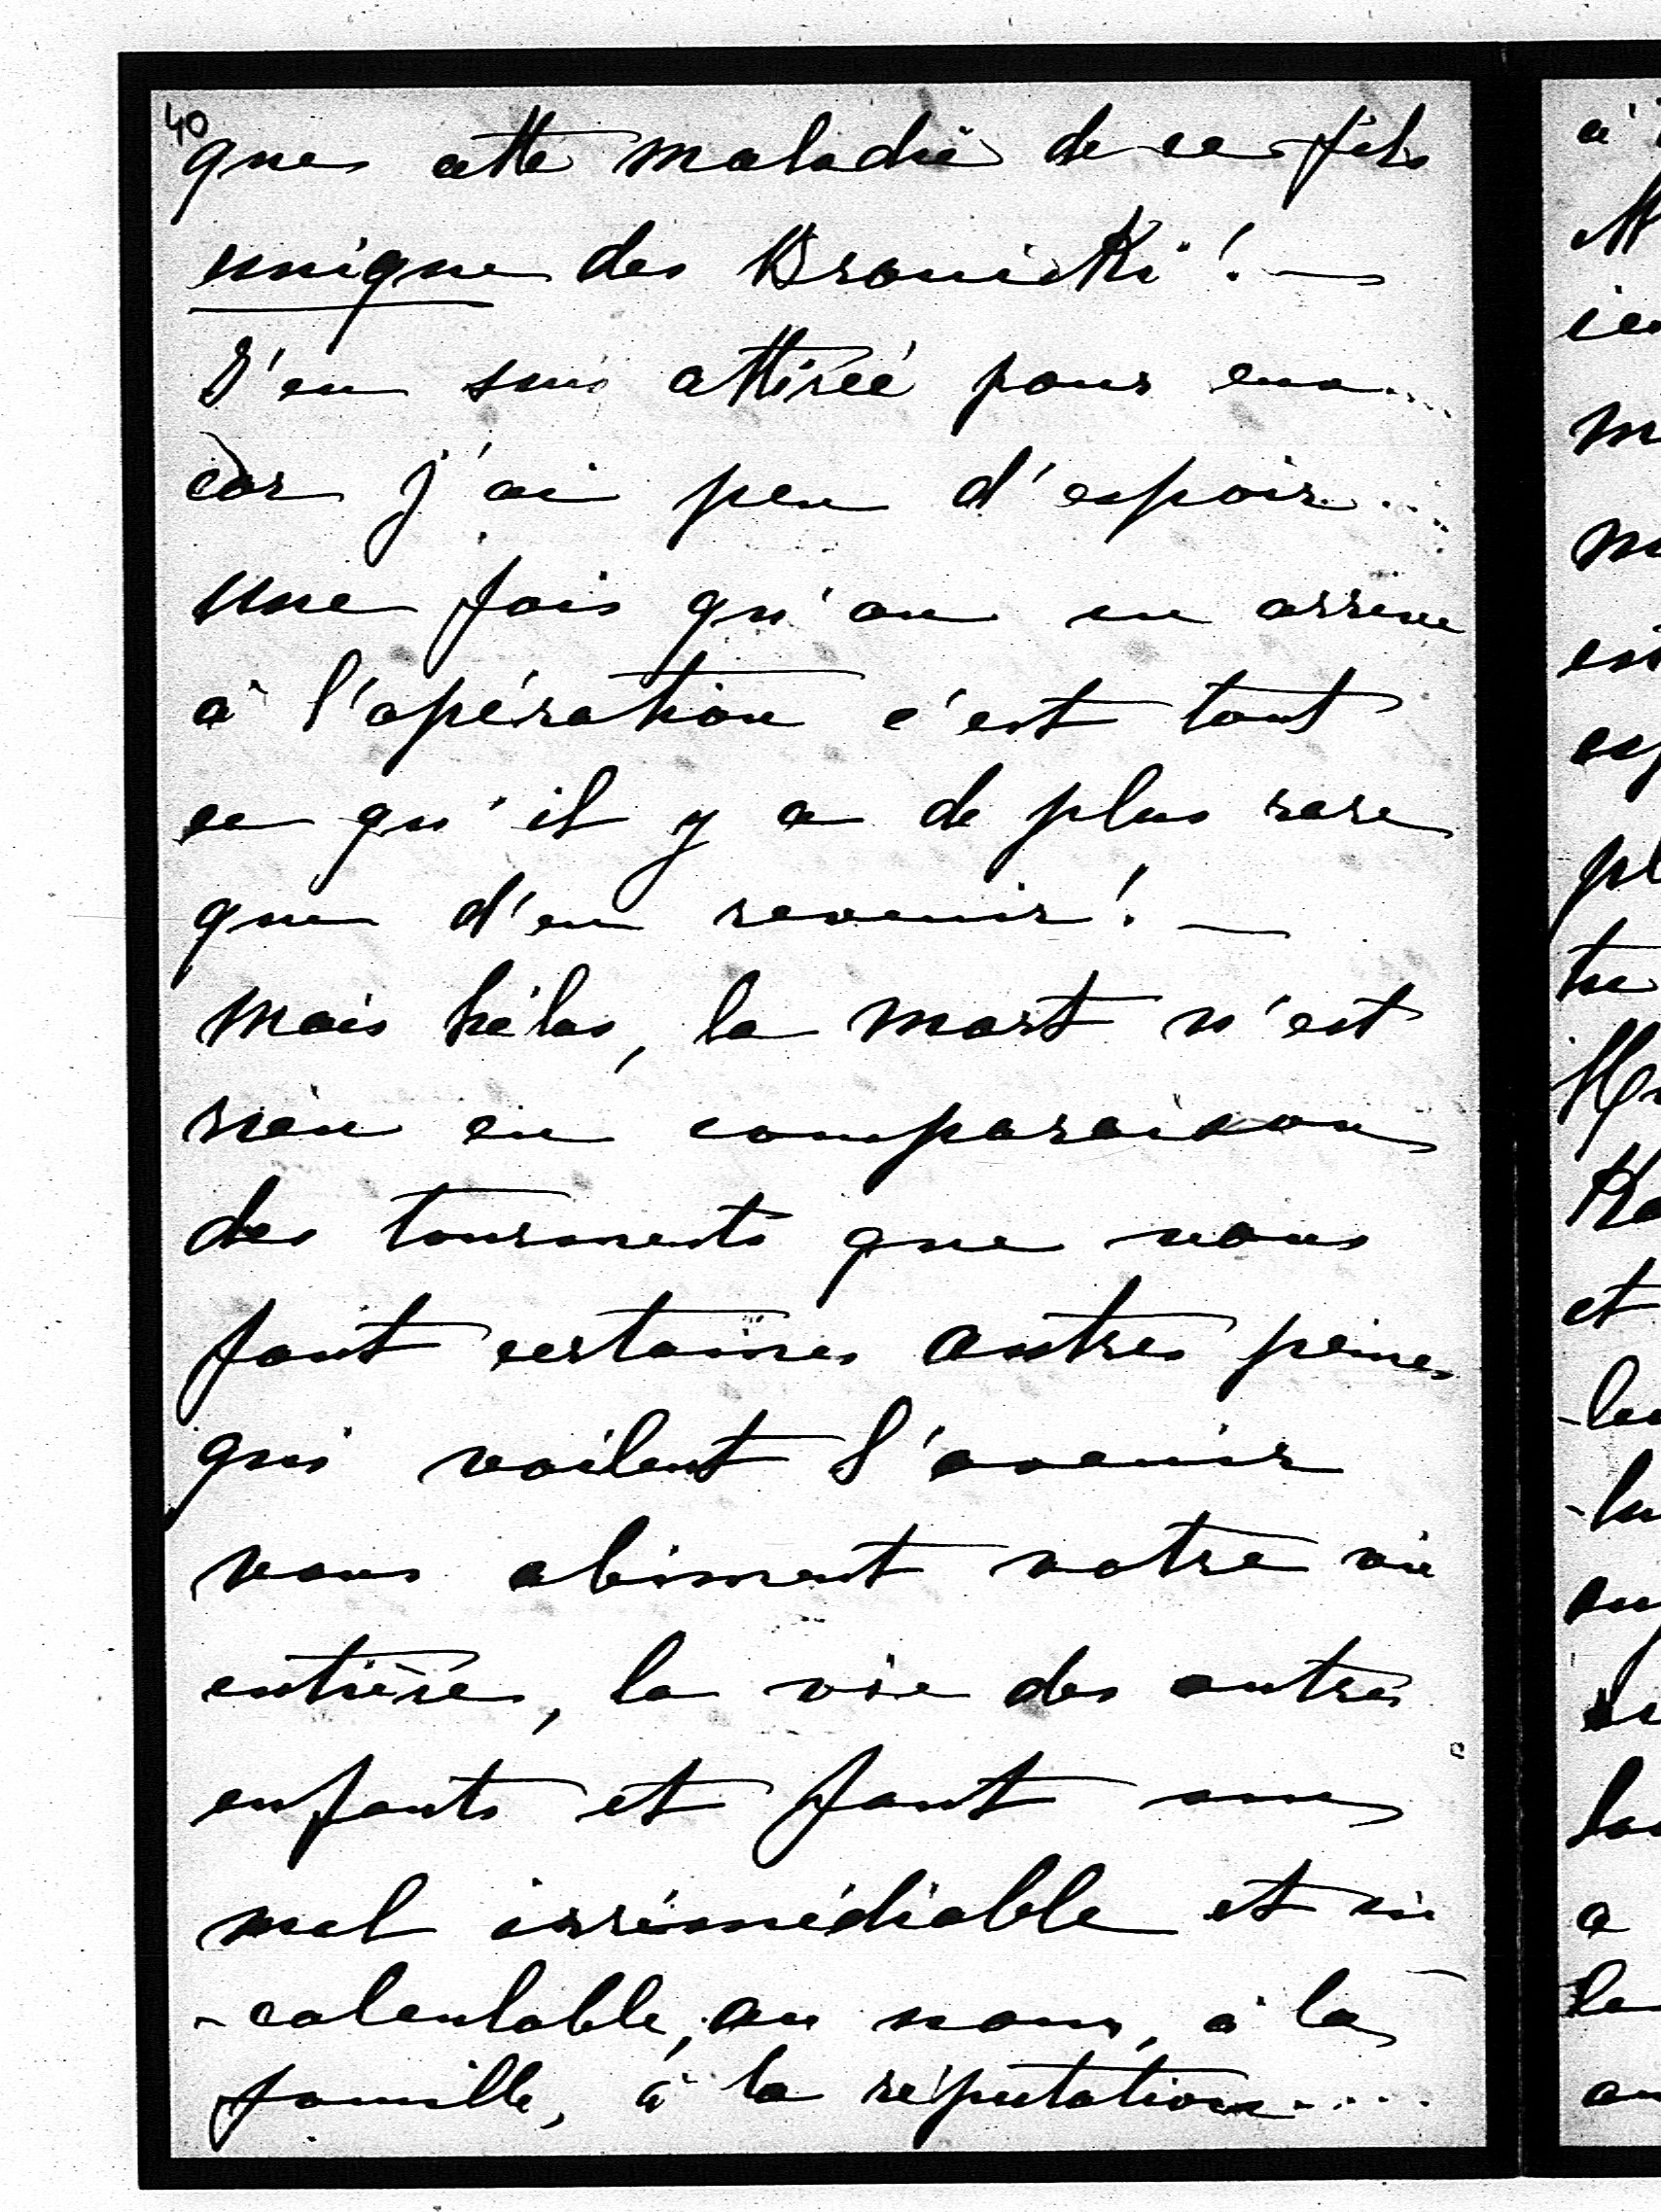 40
que cette maladie de ce fils
unique des Branicki ! —
J'en suis attirée pour eux....
car j'ai peu d'espoir....
une fois qu'on en arrive
à l'opération c'est tout
ce qu'il y a de plus rare
que d'en revenir ! —
mais hélas, la mort n'est
rien en comparaison
des tourments que nous
font certaines autres peines
qui voilent l'avenir
nous abiment notre vie
entière, la vie des autres
enfants et font un
mal irrémédiable et in
-calculable, au nom, à la
famille, à la réputation....